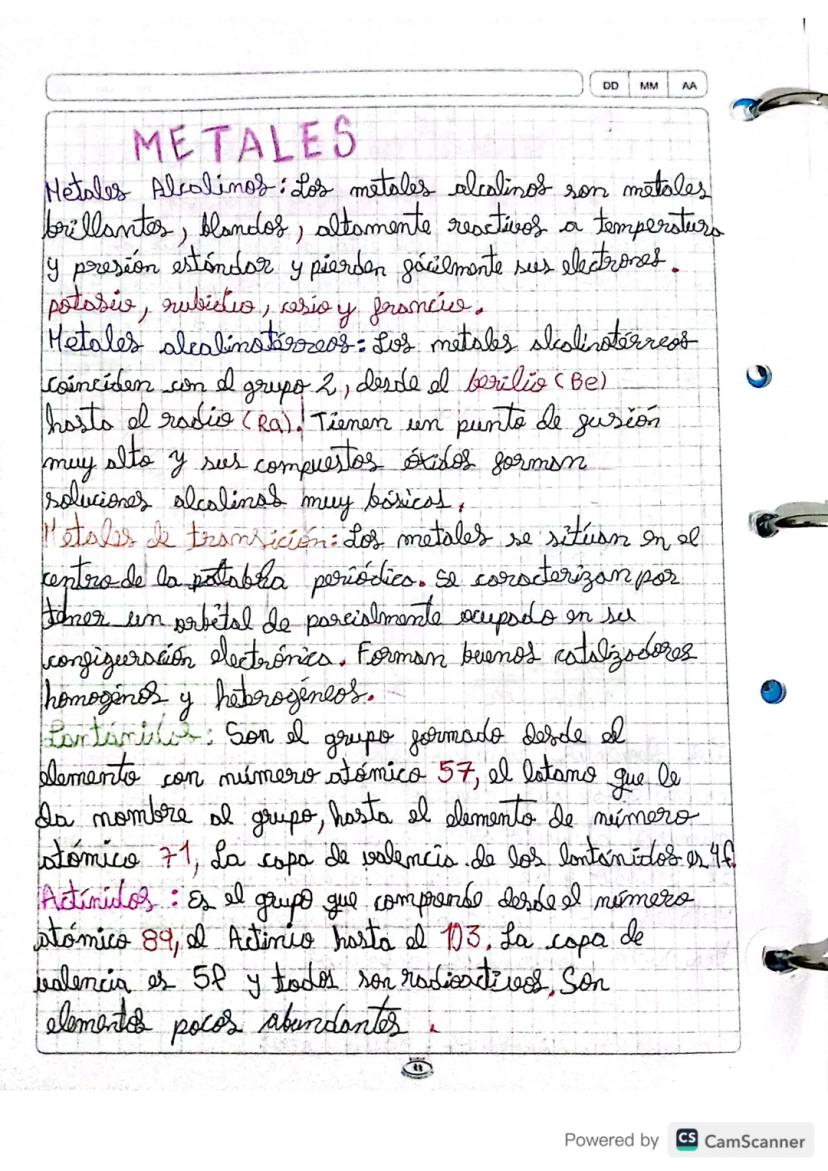 DD MM AA
METALES
Metales Alcalinos: Los metales alcalinos son metales
brillantes, blandos, altamente reactivos a temperatura
y presión estándar y pierden fácilmente sus electrones.
potasio, rubidio, cesio y francio.
Metales alcalinotérreos: Los metales alcalinotérreos
coinciden con el grupo 2, desde el berilio (Be)
hasta el radio (Ra). Tienen un punto de fusión
muy alto y sus compuestos óxidos forman
soluciones alcalinas muy básicas.
Metales de transición: Los metales se sitúan en el
centro de la periódica. se caracterizan por
tener un orbital de parcialmente ocupado en su
configuración electrónica. Forman buenos catalizadores
homogénos y heterogéneos.
Lantánidos: Son el grupo formado desde el
elemento con número atómico 57, el latano que le
da nombre al grupo, hasta el elemento de número
atómico 71, La capa de valencia de los lantánidos es 4f.
Actínidos: Es el grupo que comprende desde el número
atómico 89, el Actinio hasta el 103. La capa de
valencia es 5f y todos son radioactivos. Son
elementos pocos abundantes.
Powered by CS CamScanner